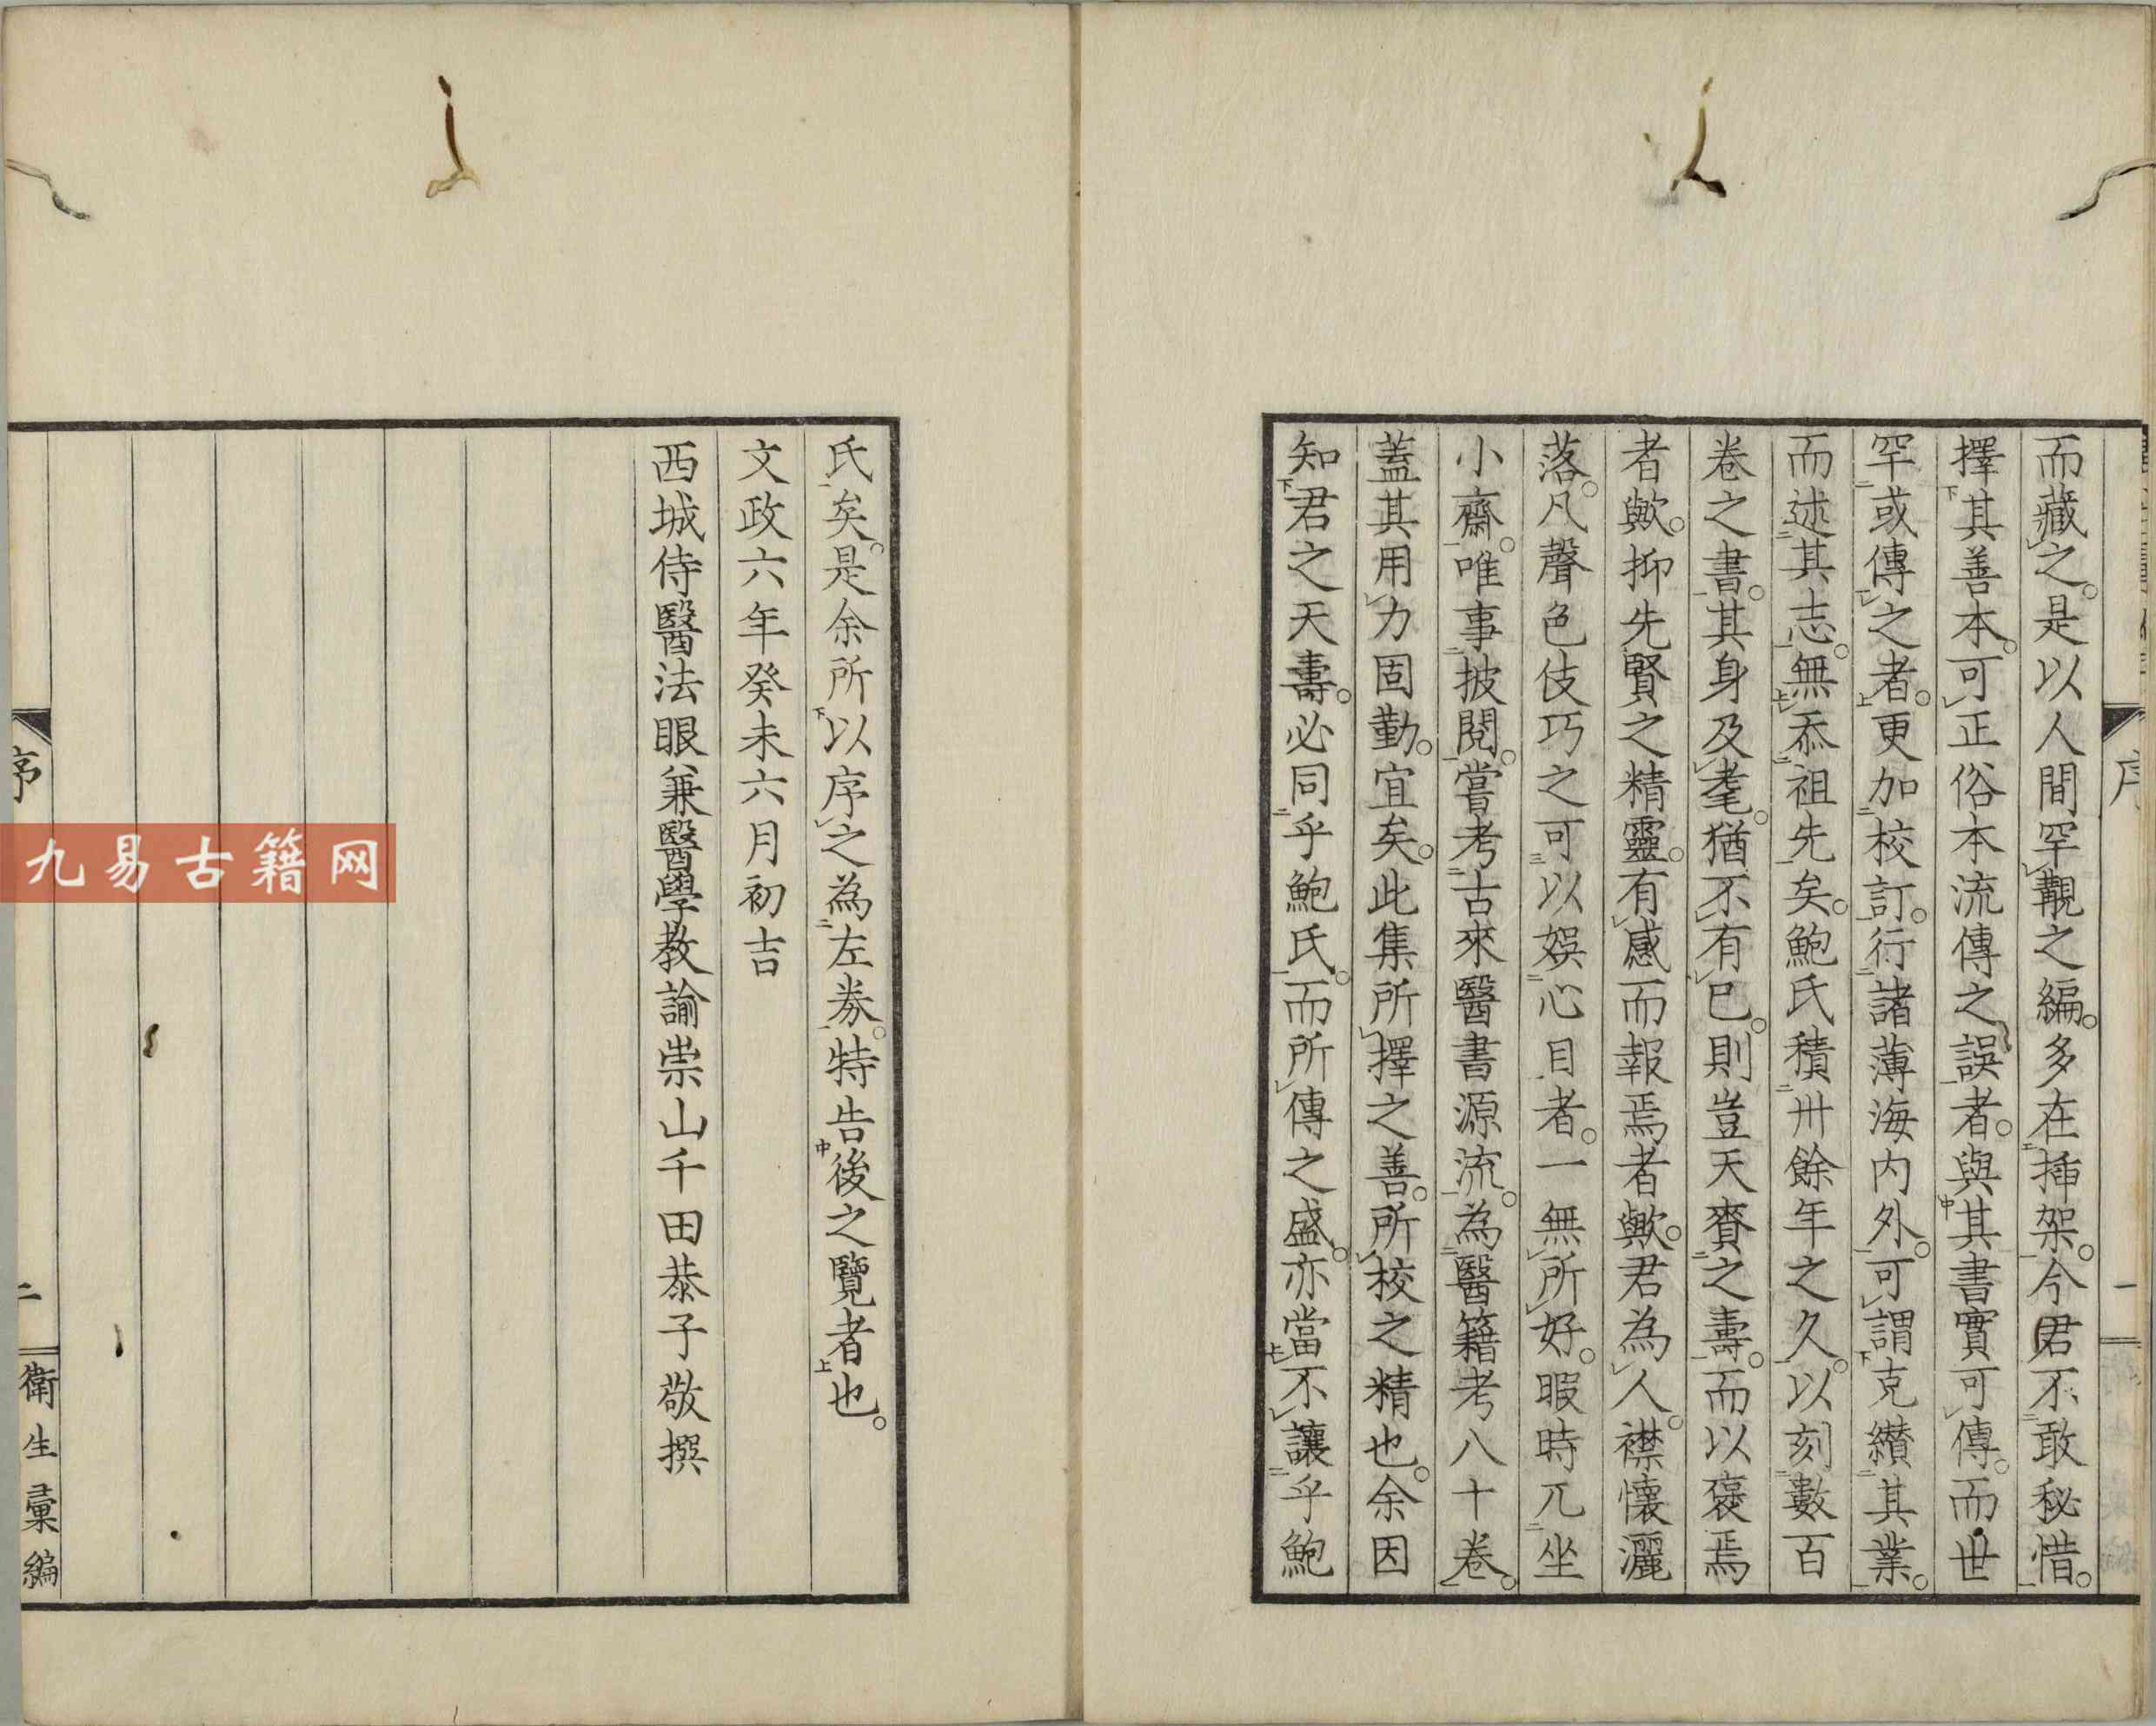 而藏之。是以人間罕覯之編。多在挿架。今君不敢秘惜。
擇其善本。可正俗本流傳之誤者。與其書實可傳。而世
罕或傳之者。更加校訂。行諸薄海內外。可謂克纉其業。
而述其志。無忝祖先矣。鮑氏積卅餘年之久。以刻數百
卷之書。其身及耄。猶不有已。則豈天賚之壽。而以褒焉
者歟。抑先賢之精靈。有感而報焉者歟。君為人。襟懷灑
落。凡聲色伎巧之可以娯心目者。一無所好。暇時兀坐
小齋。唯事披閱。嘗考古來醫書源流。為醫籍考八十卷。
蓋其用力固勤。宜矣。此集所擇之善。所校之精也。余因
知君之天壽。必同乎鮑氏。而所傳之盛。亦當不讓乎鮑
氏矣。是余所以序之為左券。特告後之覽者也。
文政六年癸未六月初吉
西城侍醫法眼兼醫學教諭崇山千田恭子敬撰
序
一
序
二
衛生彙編
九易古籍网